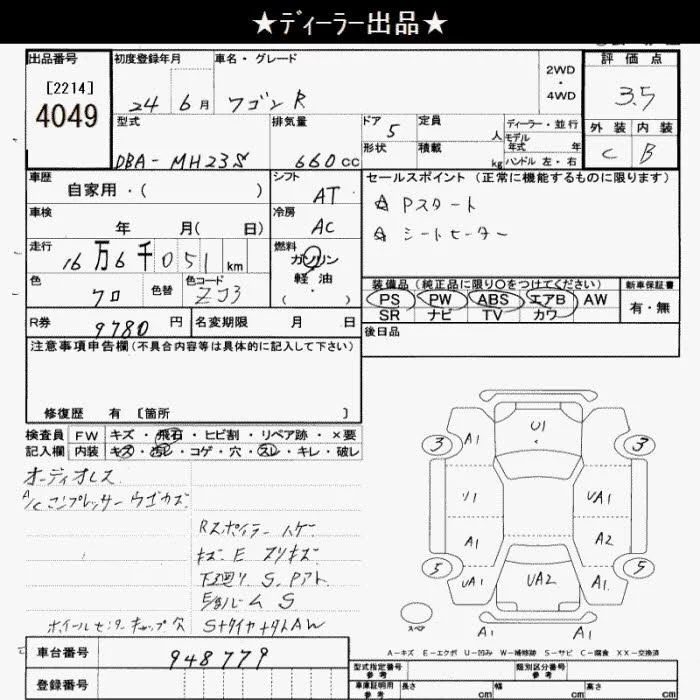 ★ディーラー出品★
出品番号
[2214]
4049
初度登録年月
24 6月
車名・グレード
ワゴンR
2WD
・
4WD
評価点
3.5
外装 内装
C B
型式
DBA-MH23S
排気量
660cc
ドア 5
形状
定員 人
積載 kg
ディーラー・並行
モデル年式 年
ハンドル 左・右
車歴
自家用・( )
シフト
AT
車検
年 月( 日)
冷房
AC
走行
16万6千051km
燃料
ガソリン
軽油
( ・ )
色
クロ
色替
色コード
ZJ3
R券
9780円
名変期限 月 日
セールスポイント(正常に機能するものに限ります)
☆ Pスタート
☆ シートヒーター
装備品(純正品に限り〇をつけてください)
PS PW ABS エアB AW
SR ナビ TV カワ
新車保証書
有・無
後日品
注意事項申告欄(不具合内容等は具体的に記入して下さい)
修復歴 有 [箇所 ]
検査員 FW キズ・飛石・ヒビ割・リペア跡・×要
記入欄 内装 キズ・汚レ・コゲ・穴・スレ・キレ・破レ
オーディオレス
A/Cコンプレッサー ウゴカズ
Rスポイラー ハゲ
キズ E スリキズ
下廻り S. Pアト
E/gルーム S
ホイールセンターキャップ欠
S+タイヤ+タトAW
U1
3 A1 3
U1 UA1
A1 A2
5 UA1 UA2 A1 5
スペア
A1 A1
A-キズ E-エクボ U-凹み W-補修跡 S-サビ C-腐食 XX-交換済
車台番号
948779
登録番号
型式指定番号
参考
類別区分番号
参考
車庫証明用
参考
長さ cm 幅 cm 高さ cm